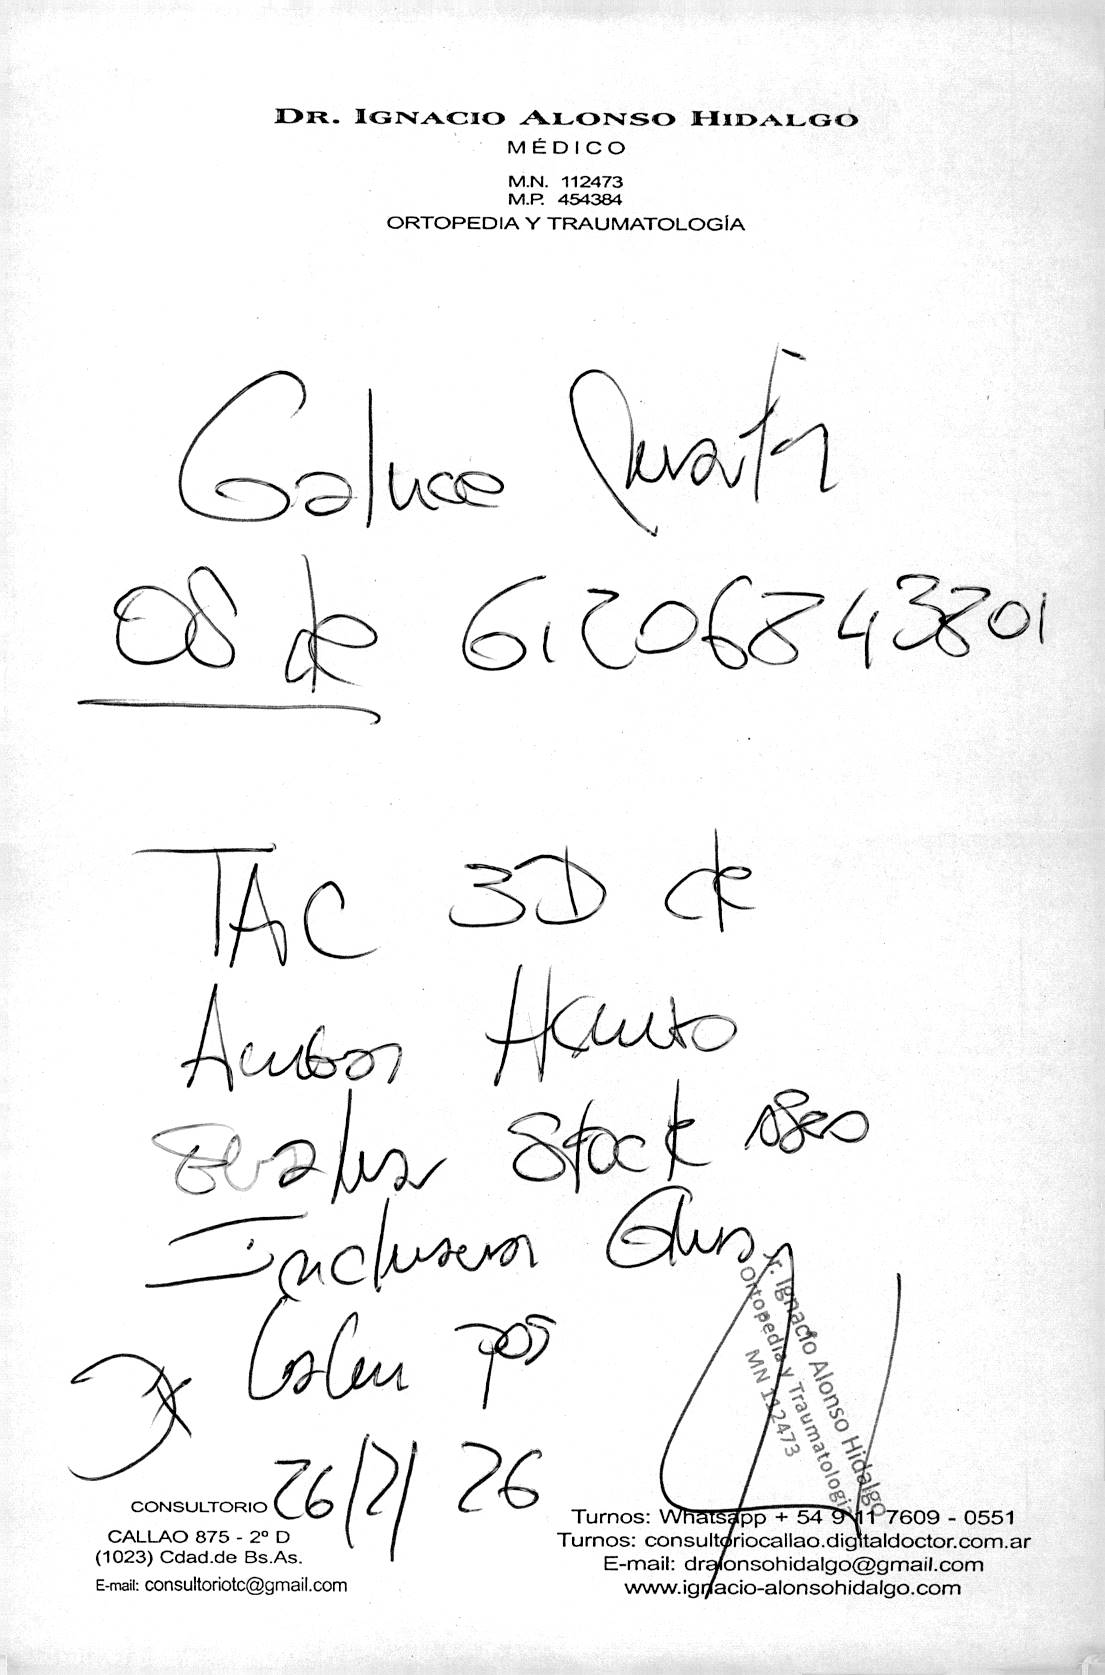 DR. IGNACIO ALONSO HIDALGO
MÉDICO
M.N. 112473
M.P. 454384
ORTOPEDIA Y TRAUMATOLOGÍA
Galuce
OS de 61206843801
TAC 3D de
Ambos
Evaluar Stock oseo
Dx
26/2/26
Dr. Ignacio Alonso Hidalgo
Ortopedia y Traumatologia
MN 112473
CONSULTORIO
CALLAO 875 - 2º D
(1023) Cdad.de Bs.As.
E-mail: consultoriotc@gmail.com
Turnos: Whatsapp + 54 9 11 7609 - 0551
Turnos: consultoriocallao.digitaldoctor.com.ar
E-mail: dralonsohidalgo@gmail.com
www.ignacio-alonsohidalgo.com